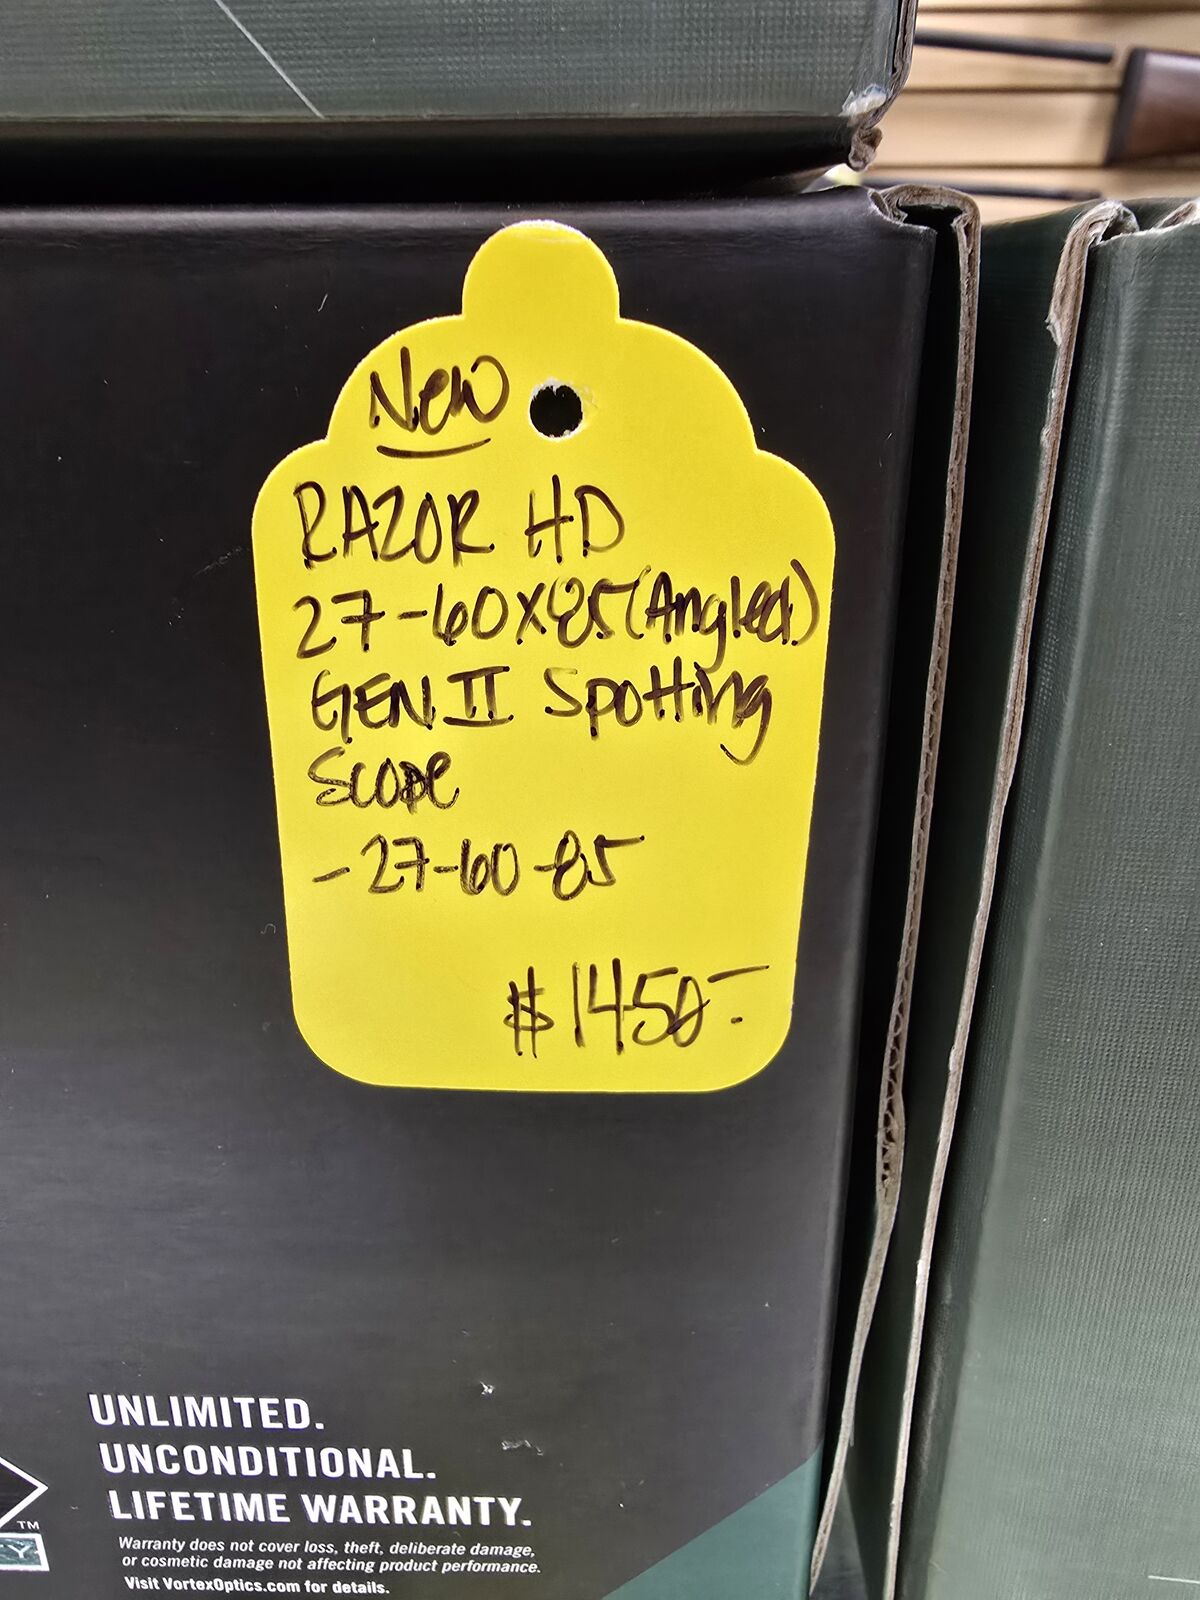 New
RAZOR HD
27-60x85 (Angled)
GEN II Spotting
Scope
- 27-60-85
$1450-
UNLIMITED.
UNCONDITIONAL.
LIFETIME WARRANTY.
TM
Y
Warranty does not cover loss, theft, deliberate damage,
or cosmetic damage not affecting product performance.
Visit VortexOptics.com for details.